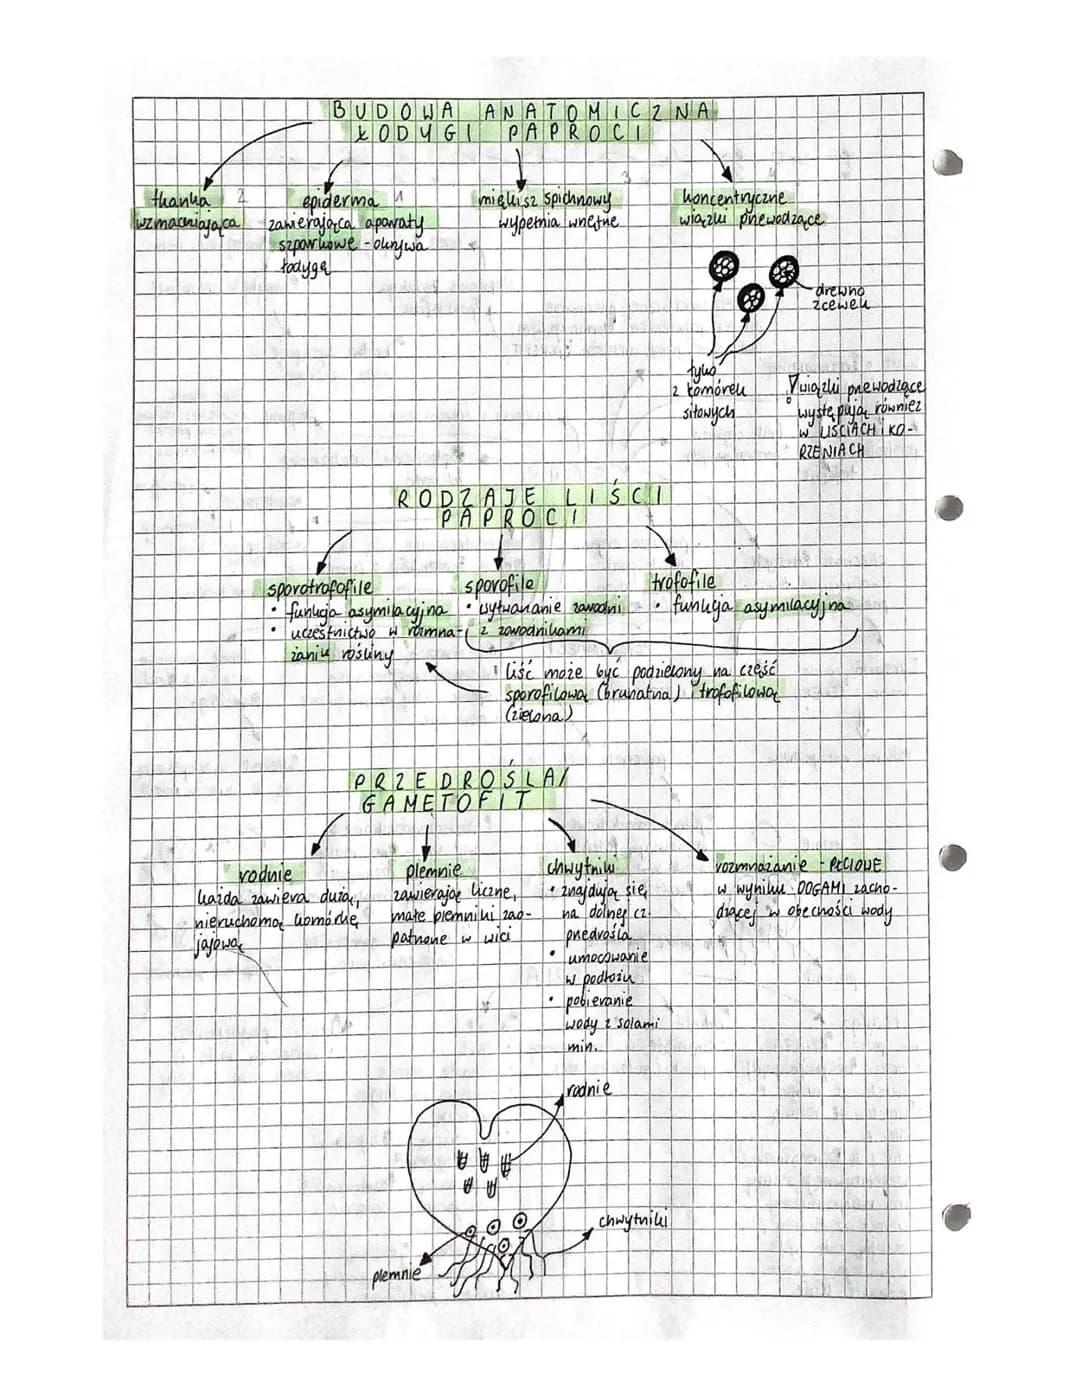 BUDOWA ANATOMICZNA
ŁODYGI PAPROCI
tkanka 2
wzmacniająca
epiderma 1
zawierająca aparaty
szparkowe - okrywa
łodygę
miękisz spichrzowy 3
wypełnia wnętrze
koncentryczne
wiązki przewodzące
drewno
z cewek
łyko
z komórek
sitowych
! wiązki przewodzące
występują również
w LIŚCIACH I KO-
RZENIACH
RODZAJE LIŚCI
PAPROCI
sporotrofofile
• funkcja asymilacyjna
• uczestnictwo w rozmna-
żaniu rośliny
sporofile
• wytwarzanie zarodni
z zarodnikami
trofofile
• funkcja asymilacyjna
! liść może być podzielony na część
sporofilową (brunatna) i trofofilową
(zielona)
PRZEDROŚLA/
GAMETOFIT
rodnie
każda zawiera dużą,
nieruchomą komórkę
jajową
plemnie
zawierają liczne,
małe plemniki zao-
patrzone w wici
chwytniki
• znajdują się
na dolnej cz.
przedrośla
• umocowanie
w podłożu
• pobieranie
wody z solami
min.
rozmnażanie - PŁCIOWE
w wyniku OOGAMI zacho-
dzącej w obecności wody
rodnie
chwytniki
plemnie